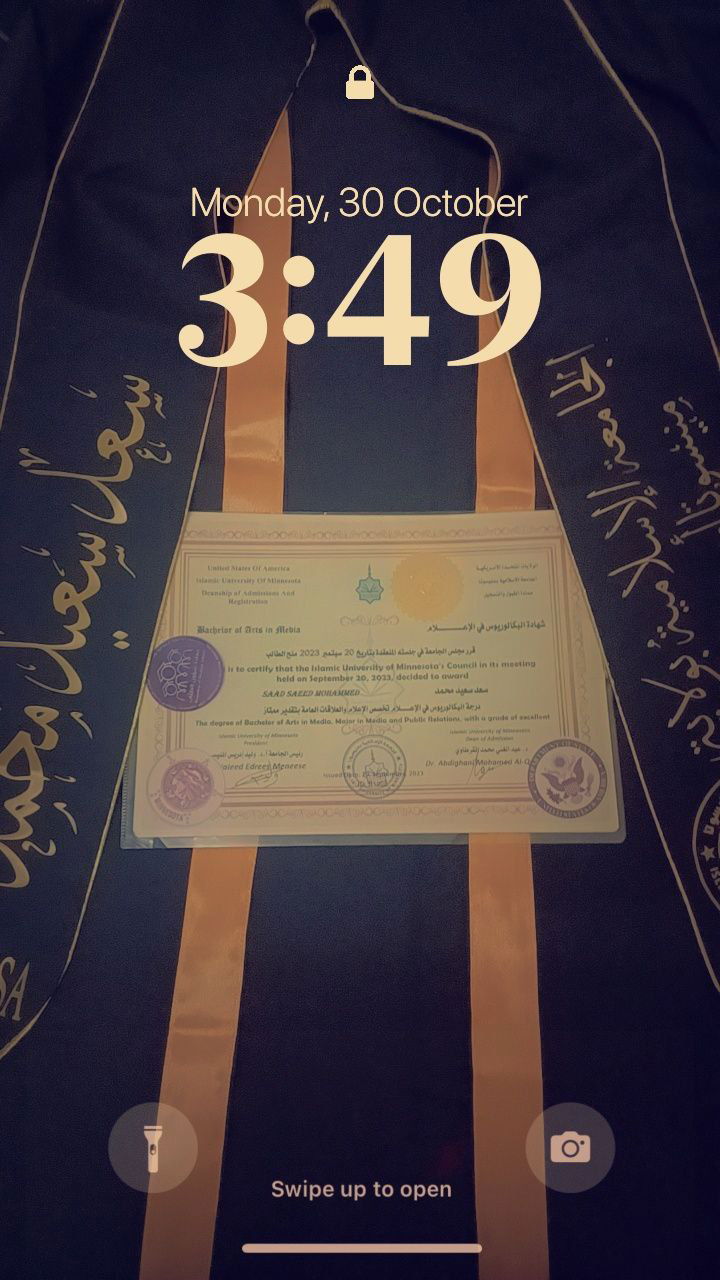 Monday, 30 October
3:49
سعد سعيد محمد
الجامعة الإسلامية بولاية
منيسوتا
SA
United States Of America
Islamic University Of Minnesota
Deanship of Admissions And
Registration
الولايات المتحدة الأمريكية
الجامعة الإسلامية بمنيسوتا
عمادة القبول والتسجيل
Bachelor of Arts in Media
شهادة البكالوريوس في الإعـــلام
قرر مجلس الجامعة في جلسته المنعقدة بتاريخ 20 سبتمبر 2023 منح الطالب
is to certify that the Islamic University of Minnesota's Council in its meeting
held on September 20, 2023, decided to award
SAAD SAEED MOHAMMED
سعد سعيد محمد
درجة البكالوريوس في الإعـــلام تخصص الإعلام والعلاقات العامة بتقدير ممتاز
The degree of Bachelor of Arts in Media, Major in Media and Public Relations, with a grade of excellent
Islamic University of Minnesota
President
Islamic University of Minnesota
Dean of Admission
رئيس الجامعة أ.د. وليد إدريس
د. عبد الغني محمد القرماوي
Waleed Edrees Meneese
Dr. Abdlghani Mohamed Al-Q
Issued Date: 20 September 2023
MINNESOTA
Swipe up to open